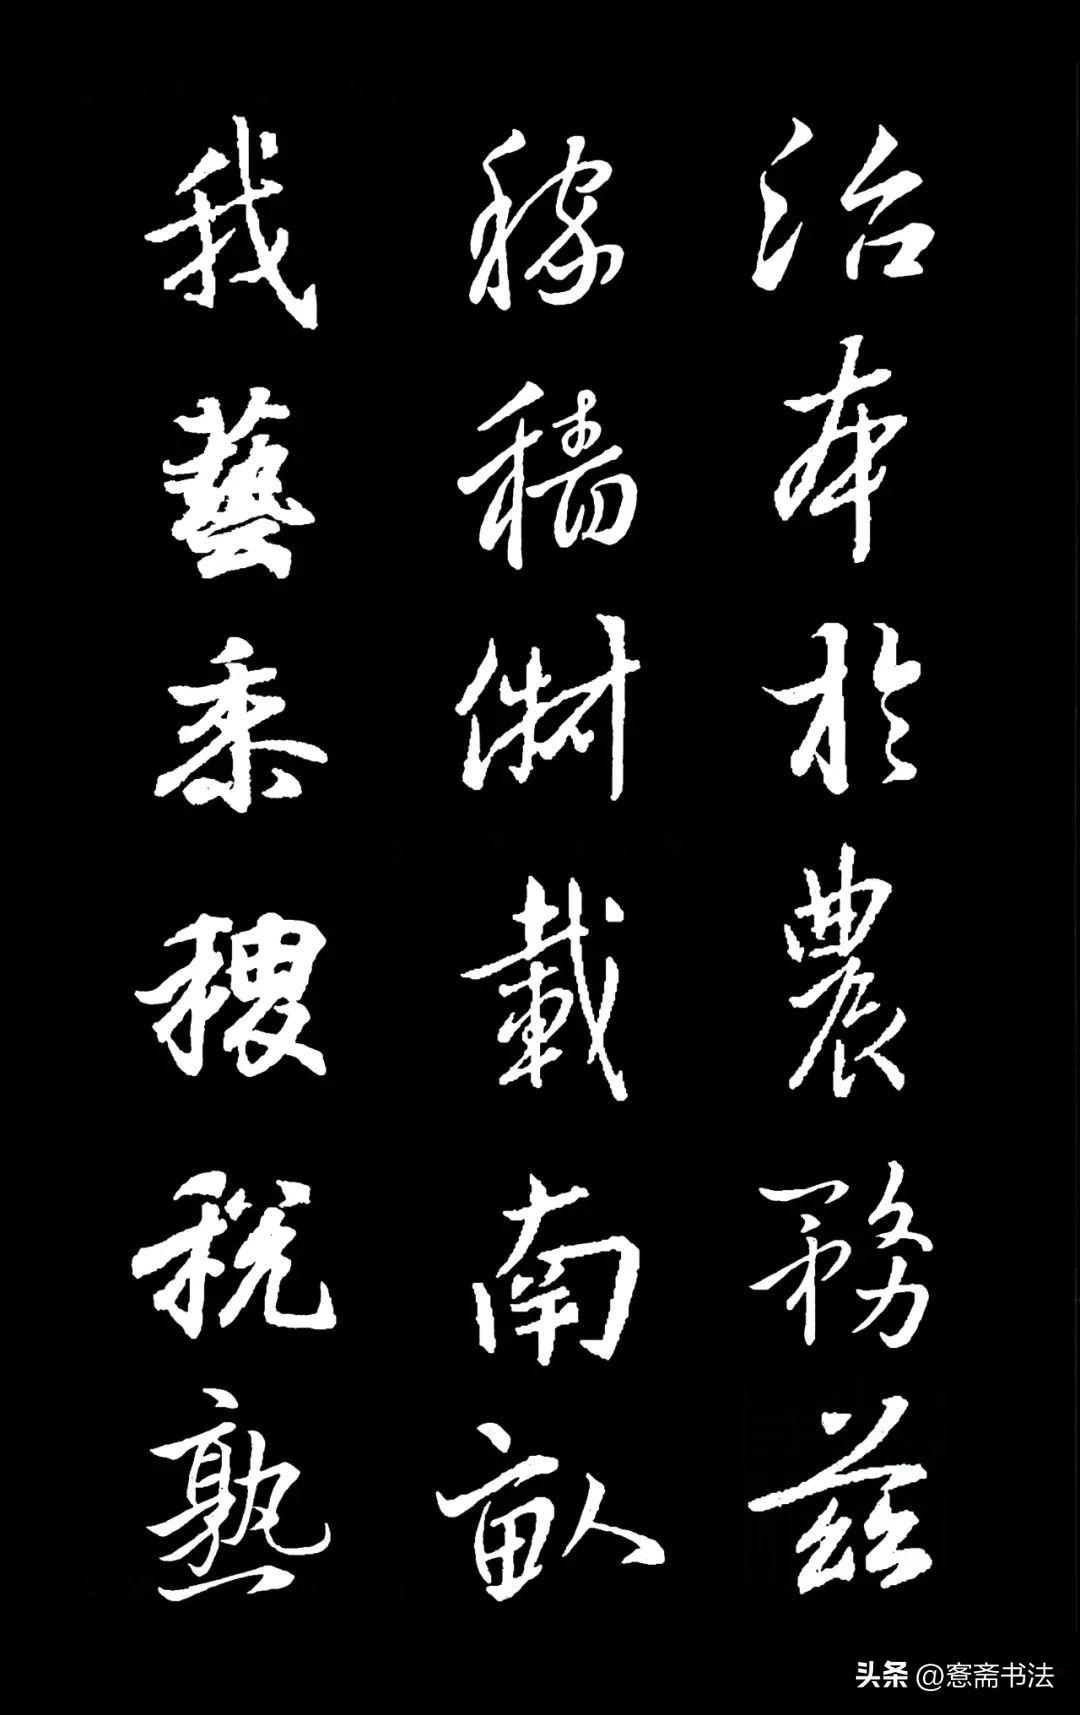 治本於農務茲
稼穡俶載南畝
我藝黍稷稅熟
头条 @愙斋书法